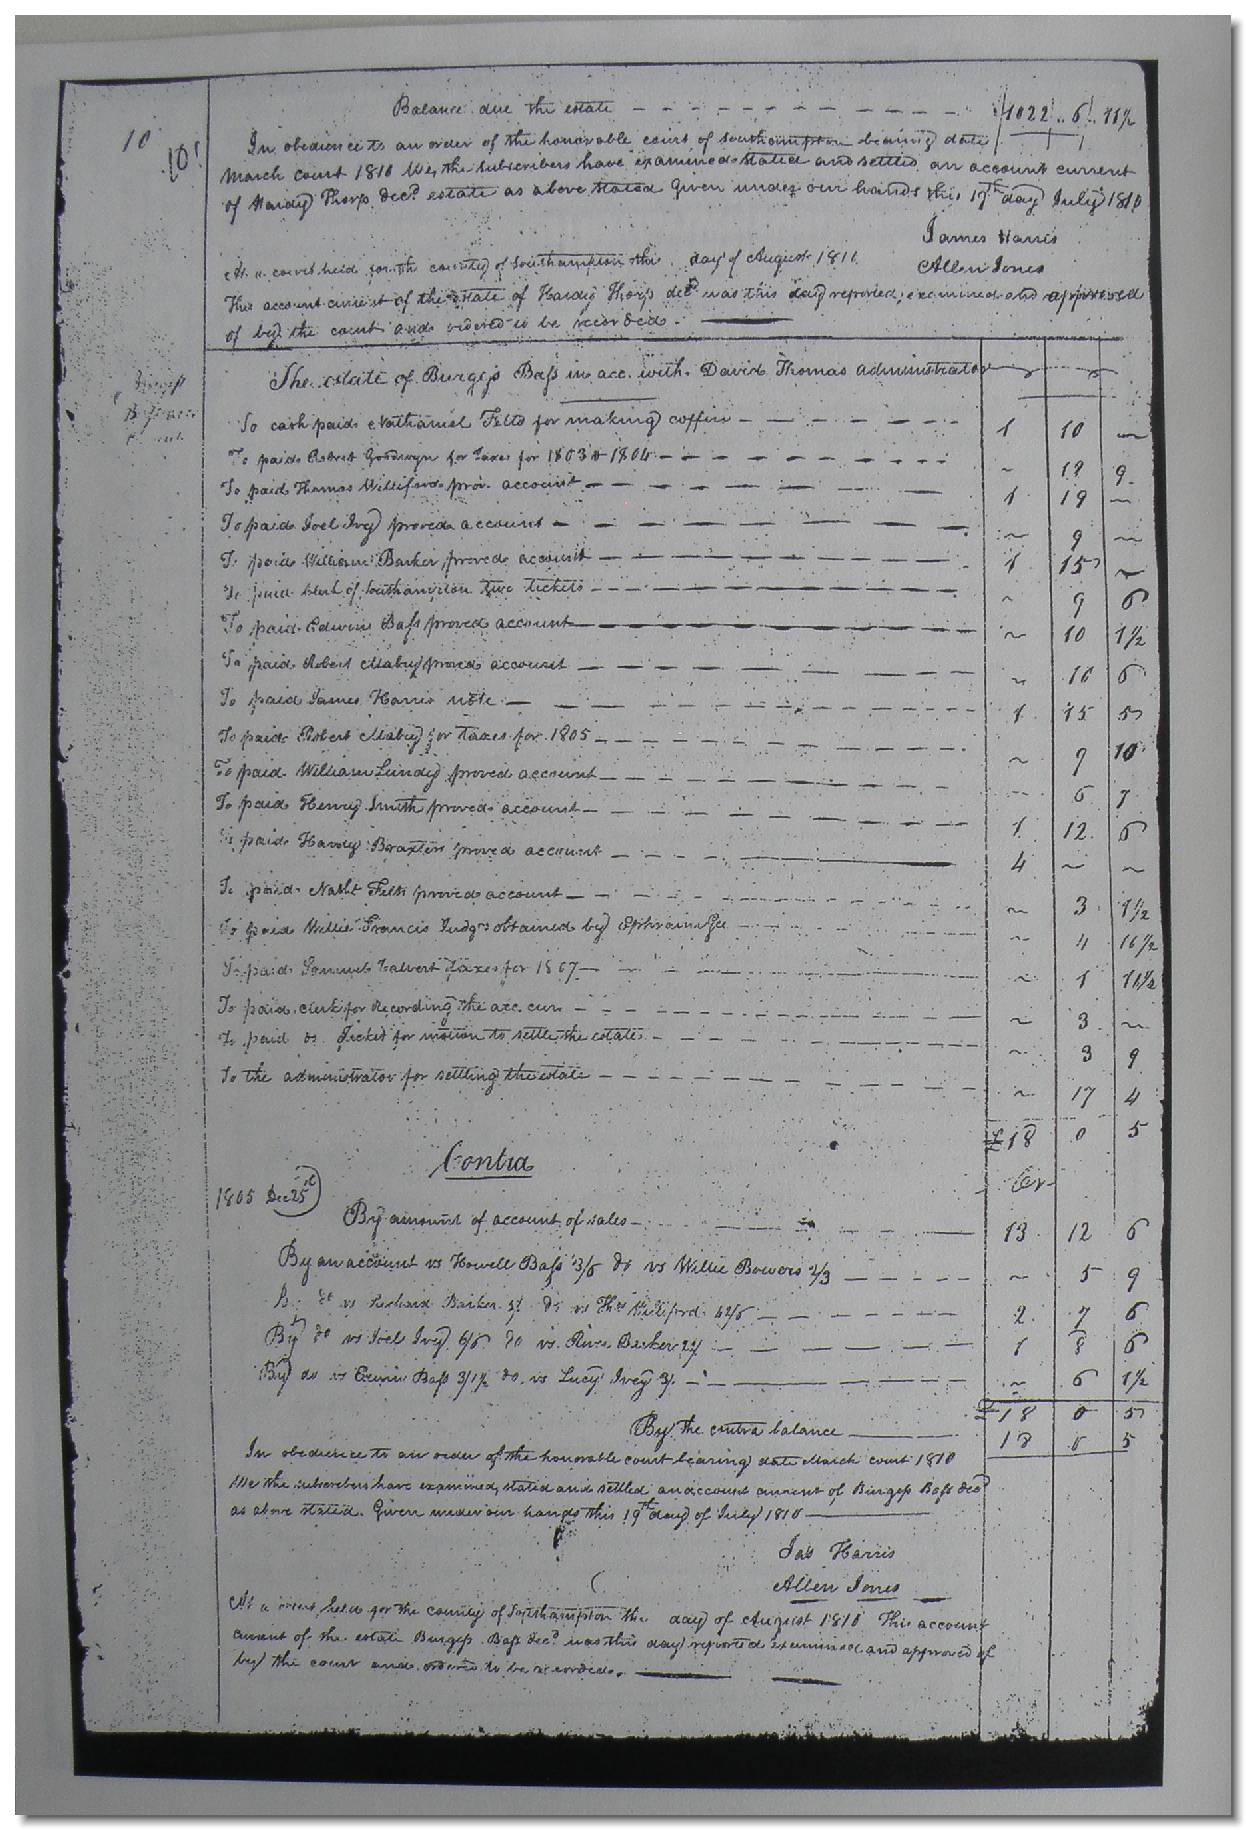 Balance due the estate 1022 .. 6 .. 11½
10
10
In obedience to an order of the honorable court of Southampton bearing date
March court 1810 We the subscribers have examined stated and settled an account current
of Hardy Thorp decd estate as above stated Given under our hands this 19th day July 1810
James Harris
Allen Jones
At a court held for the county of Southampton the day of August 1810
This account current of the estate of Hardy Thorp decd was this day reported, examined and approved
of by the court and ordered to be recorded.
The estate of Burgess Bass in acc. with David Thomas administrator
To cash paid Nathaniel Felts for making coffin 1 10 ~
To paid Robert Goodwyn for taxes for 1803 & 1804 ~ 19 9
To paid Thomas Williford prov. account 1 19 ~
To paid Joel Ivey proved account ~ 9 ~
To paid William Barker proved account 1 15 ~
To paid clerk of Southampton two tickets ~ 9 6
To paid Edwin Bass proved account ~ 10 1½
To paid Robert Mabry proved account ~ 16 6
To paid James Harris note 1 15 5
To paid Robert Mabry for taxes for 1805 ~ 9 10
To paid William Lundy proved account ~ 6 7
To paid Henry Smith proved account 1 12 6
To paid Hardy Braxton proved account 4 ~ ~
To paid Nathl Felts proved account ~ 3 1½
To paid Willie Francis Judgt obtained by Ephraim Gee ~ 4 10½
To paid Samuel Calvert taxes for 1807 ~ 1 11½
To paid clerk for recording the acc. curr ~ 3 ~
To paid do Ticket for motion to settle the estate ~ 3 9
To the administrator for settling the estate ~ 17 4
£18 0 5
Contra Cr
1805 Dec 25th
By amount of account of sales 13 12 6
By an account vs Howell Bass 3/6 do vs Willie Bowers 2/3 ~ 5 9
By do vs Richard Barker 5/ do vs Thos Williford 42/6 2 7 6
By do vs Joel Ivey 6/6 do vs. Barker 22/ 1 8 6
By do vs Edwin Bass 3/1½ do. vs Lucy Ivey 3/. ~ 6 1½
£18 0 5
By the contra balance 18 0 5
In obedience to an order of the honorable court bearing date March court 1810
We the subscribers have examined, stated and settled an account current of Burgess Bass decd
as above stated. Given under our hands this 19th day of July 1810
Jas Harris
Allen Jones
At a court held for the county of Southampton the day of August 1810 This account
current of the estate Burgess Bass decd was this day reported examined and approved of
by the court and ordered to be recorded.